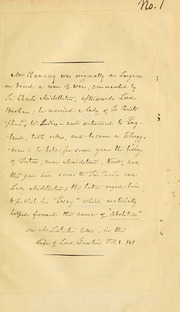 No. 1
Mr Ramsay was originally a Surgeon
on board a man of war, commanded by
Sir Charles Middleton, afterwards Lord
Barham; he married a lady of St Christo
pher's, the Indies and returned to Eng-
land, took orders, and became a Clergy-
man & he held for some years the living
of Teston, near Maidstone, Kent, and
this gave him access to Sir Charles and
Lady Middleton; the latter urged him
to publish his "Essay" which materially
helped forward the cause of "Abolition"
Mr Letter, in the
Life of Lord Vol 1. 141